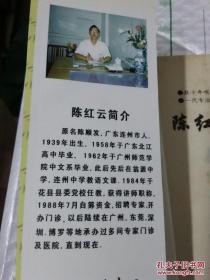 陈红云简介
原名陈顺发，广东连州市人．
1939年出生，1958年于广东北江
高中毕业，1962年于广州师范学
院中文系毕业，此后先后在翁源中
学、连州中学教语文课．1984年于
花县县委党校任教，获得讲师职称，
1988年7月自筹资金，招聘专家，开
办门诊，以后陆续在广州、东莞、深
圳、博罗等地承办过多间专家门诊
及医院，直到现在．
陈红